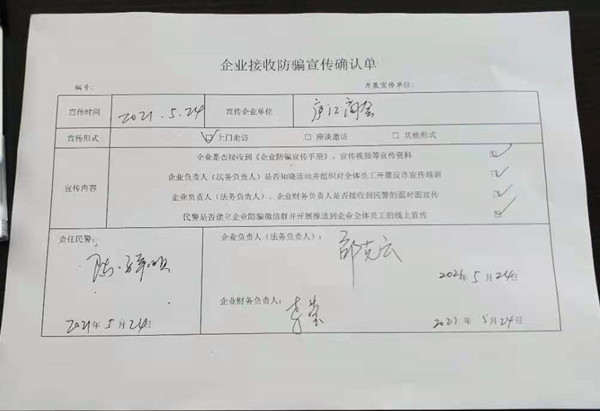 企业接收防骗宣传确认单
编号： 开展宣传单位：
宣传时间 2021.5.24 宣传企业单位 商会
宣传形式 ☑上门走访 □座谈邀访 □其他形式
宣传内容
企业是否接收到《企业防骗宣传手册》、宣传视频等宣传资料 ☑
企业负责人（法务负责人）是否知晓活动并组织对全体员工开展反诈宣传培训 ☑
企业负责人（法务负责人）、企业财务负责人是否接收到民警的面对面宣传 ☑
民警是否建立企业防骗微信群并开展推送到企业全体员工的线上宣传 ☑
责任民警：
2021年 5月 24日
企业负责人（法务负责人）： 邵克云
2021年 5月 24日
企业财务负责人： 李
2021年 5月 24日